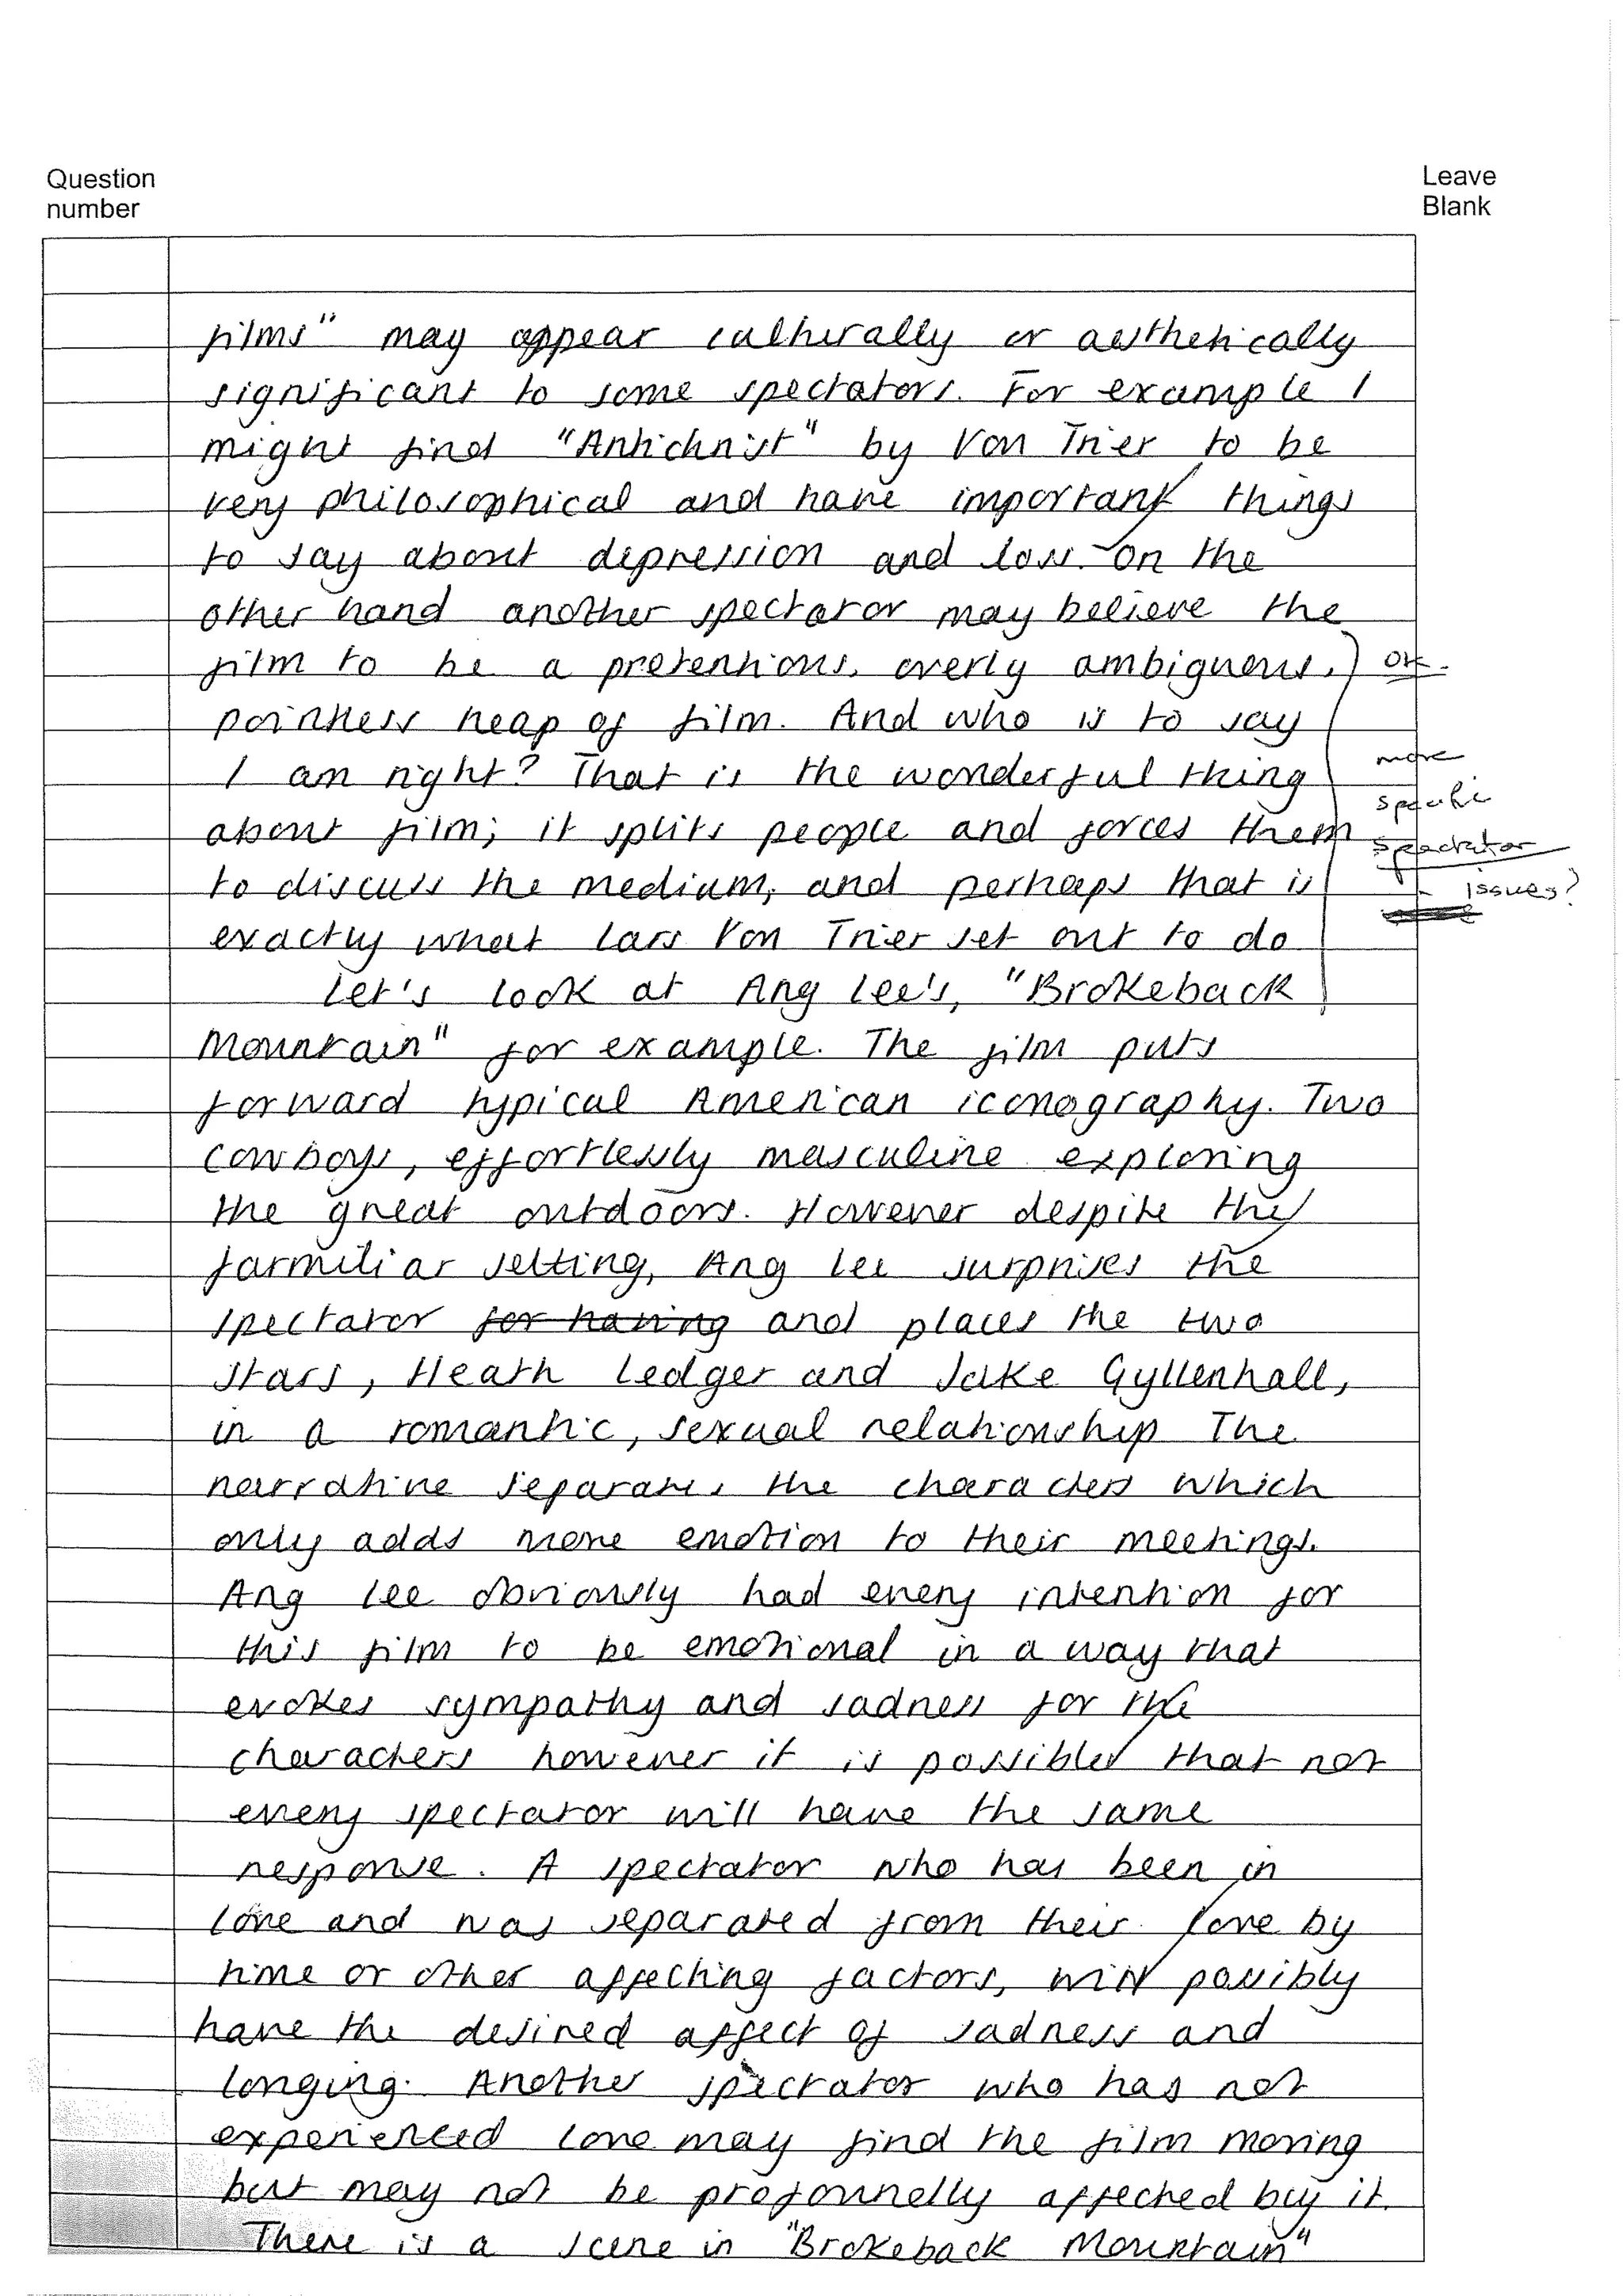 Question
number
Leave
Blank
films" may appear culturally or aesthetically
significant to some spectators. For example I
might find "Antichrist" by Von Trier to be
very philosophical and have important things
to say about depression and loss. On the
other hand another spectator may believe the
film to be a pretentious, overly ambiguous,
OK.
pointless heap of film. And who is to say
I am right? That is the wonderful thing
more
specific
about film; it splits people and forces them
spectator
to discuss the medium, and perhaps that is
- issues?
exactly what Lars Von Trier set out to do
Let's look at Ang Lee's, "Brokeback
Mountain" for example. The film puts
forward typical American iconography. Two
cowboys, effortlessly masculine exploring
the great outdoors. However despite the
farmiliar setting, Ang Lee surprises the
spectator for having and places the two
stars, Heath Ledger and Jake Gyllenhall,
in a romantic, sexual relationship The
narrative separates the characters which
only adds more emotion to their meetings.
Ang Lee obviously had every intention for
this film to be emotional in a way that
evokes sympathy and sadness for the
characters however it is possible that not
every spectator will have the same
response. A spectator who has been in
love and was separated from their love by
time or other affecting factors, will possibly
have the desired affect of sadness and
longing. Another spectator who has not
experienced love may find the film moving
but may not be profounelly affected by it.
There is a scene in "Brokeback Mountain"